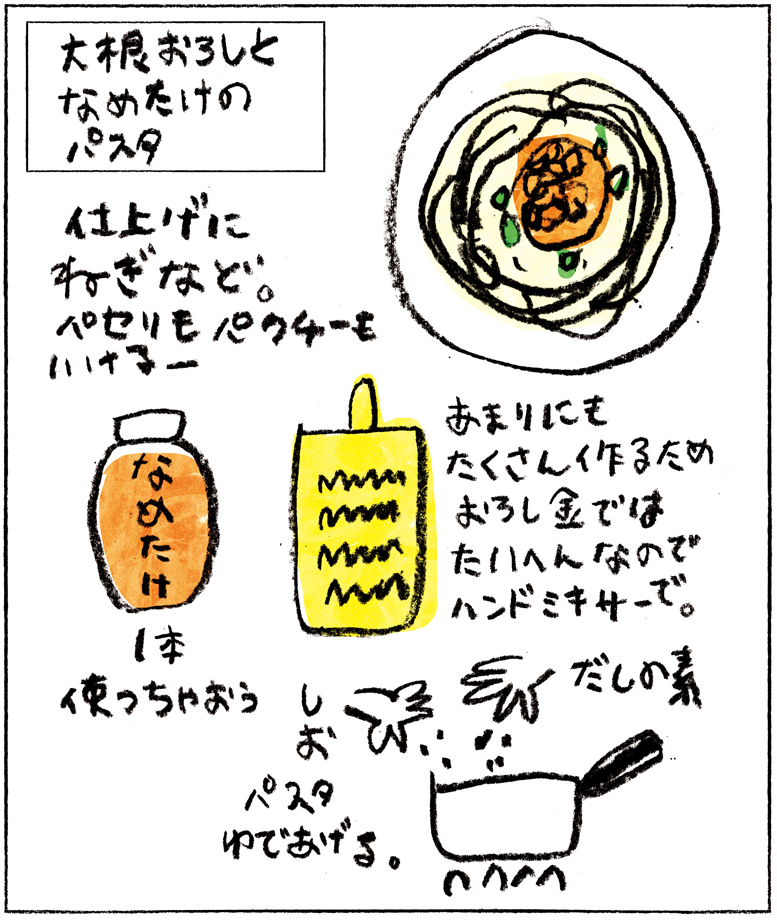 大根おろしと
なめたけの
パスタ
仕上げに
ねぎなど。
パセリもパクチーも
いけるー
なめたけ
1本
使っちゃおう
あまりにも
たくさん作るため
おろし金では
たいへんなので
ハンドミキサーで。
しお
だしの素
パスタ
ゆであげる。